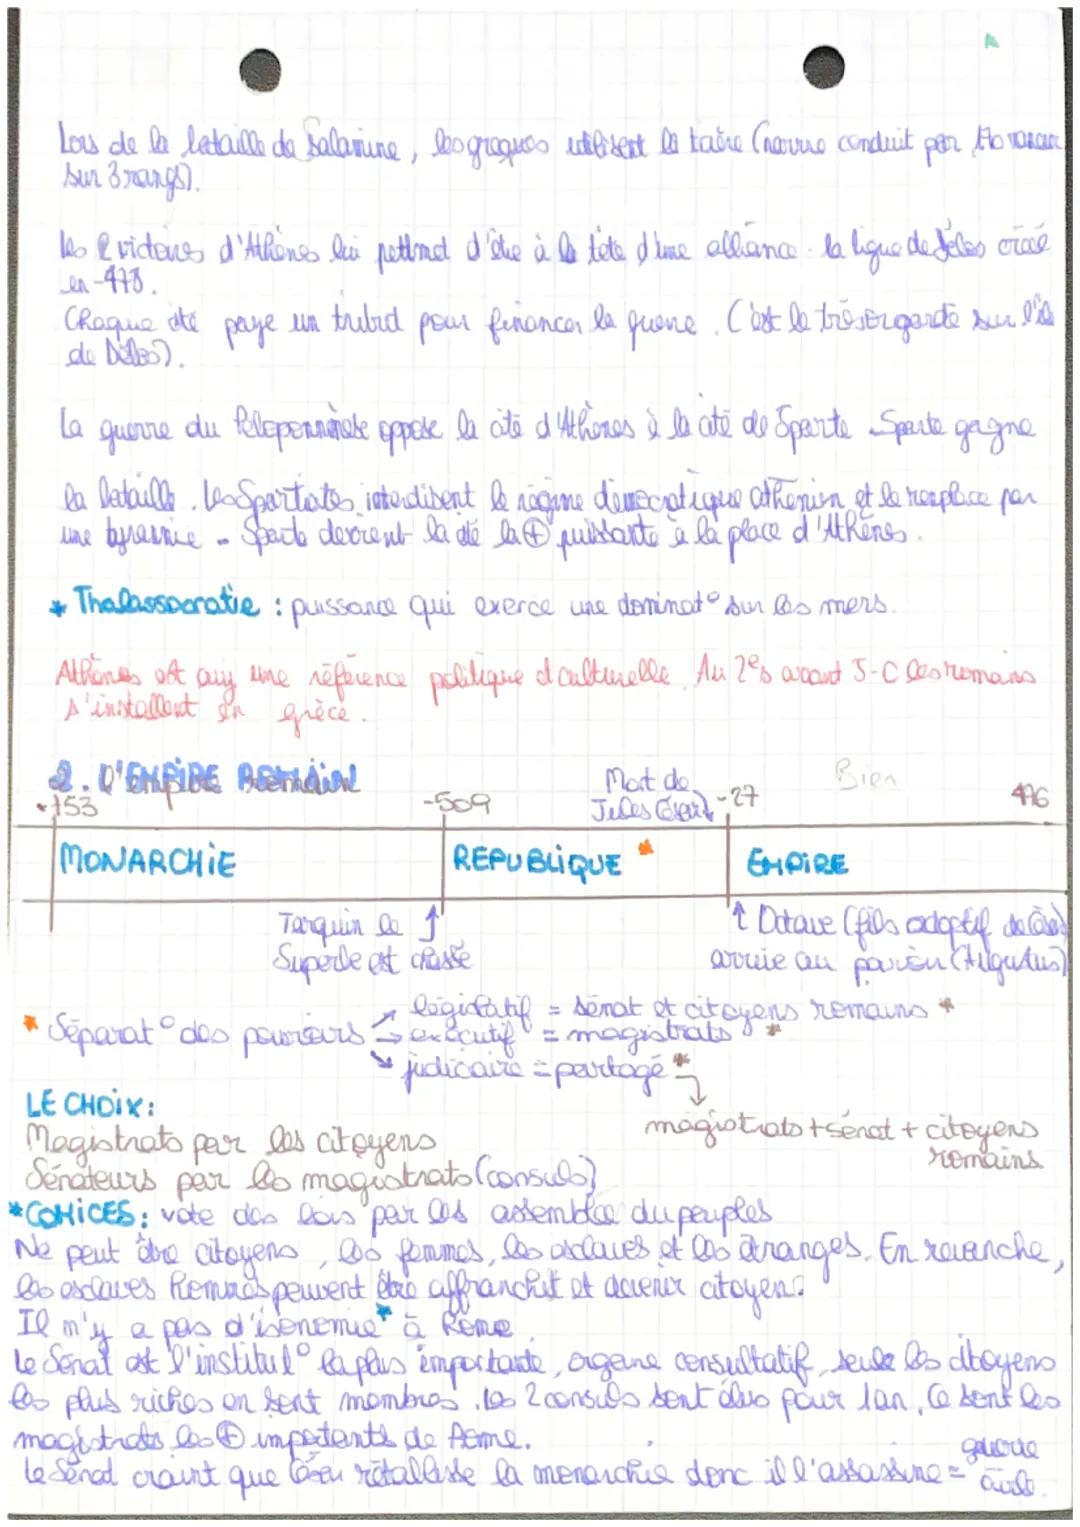 Lors de la bataille de Salamine, les grecques utilisent la trière (navire conduit par des rameurs
sur 3 rangs).
les 2 victoires d'Athènes lui permet d'être à la tête d'une alliance : la ligue de Délos créé
en -478.
Chaque cité paye un tribut pour financer la guerre. C'est le trésor gardé sur l'île
de Délos).
La guerre du Péloponnèse oppose la cité d'Athènes à la cité de Sparte. Sparte gagne
la bataille. Les Spartiates interdisent le régime démocratique athénien et le remplace par
une tyrannie. Sparte devient la cité la ⊕ puissante à la place d'Athènes.
* Thalassocratie : puissance qui exerce une dominat° sur les mers.
Athènes est auj une référence politique et culturelle. Au 2es avant J-C les romains
s'installent en grèce.
2. l'EMPIRE Romain
Bien
-753 -509 Mort de Jules César -27 476
MONARCHIE REPUBLIQUE * EMPIRE
Tarquin le ↑ ↑ Octave (fils adoptif de César)
Superbe est chassé arrive au pouvoir (Augustus)
législatif = sénat et citoyens romains *
* Séparat° des pouvoirs → exécutif = magistrats *
judicaire = partagé *
LE CHOIX :
magistrats + sénat + citoyens
romains
Magistrats par les citoyens
Sénateurs par les magistrats (consuls)
* COMICES : vote des lois par les assemblée du peuples
Ne peut être citoyens, les femmes, les esclaves et les étrangers. En revanche,
les esclaves Hommes peuvent être affranchit et devenir citoyen.
Il n'y a pas d'isonomie* à Rome
Le Sénat est l'institut° la plus importante, organe consultatif, seule les citoyens
les plus riches en sont membres. Les 2 consuls sont élus pour 1an. Ce sont les
magistrats les ⊕ importants de Rome.
Le Sénat craint que César rétablisse la monarchie donc il l'assassine = guerre
civile.